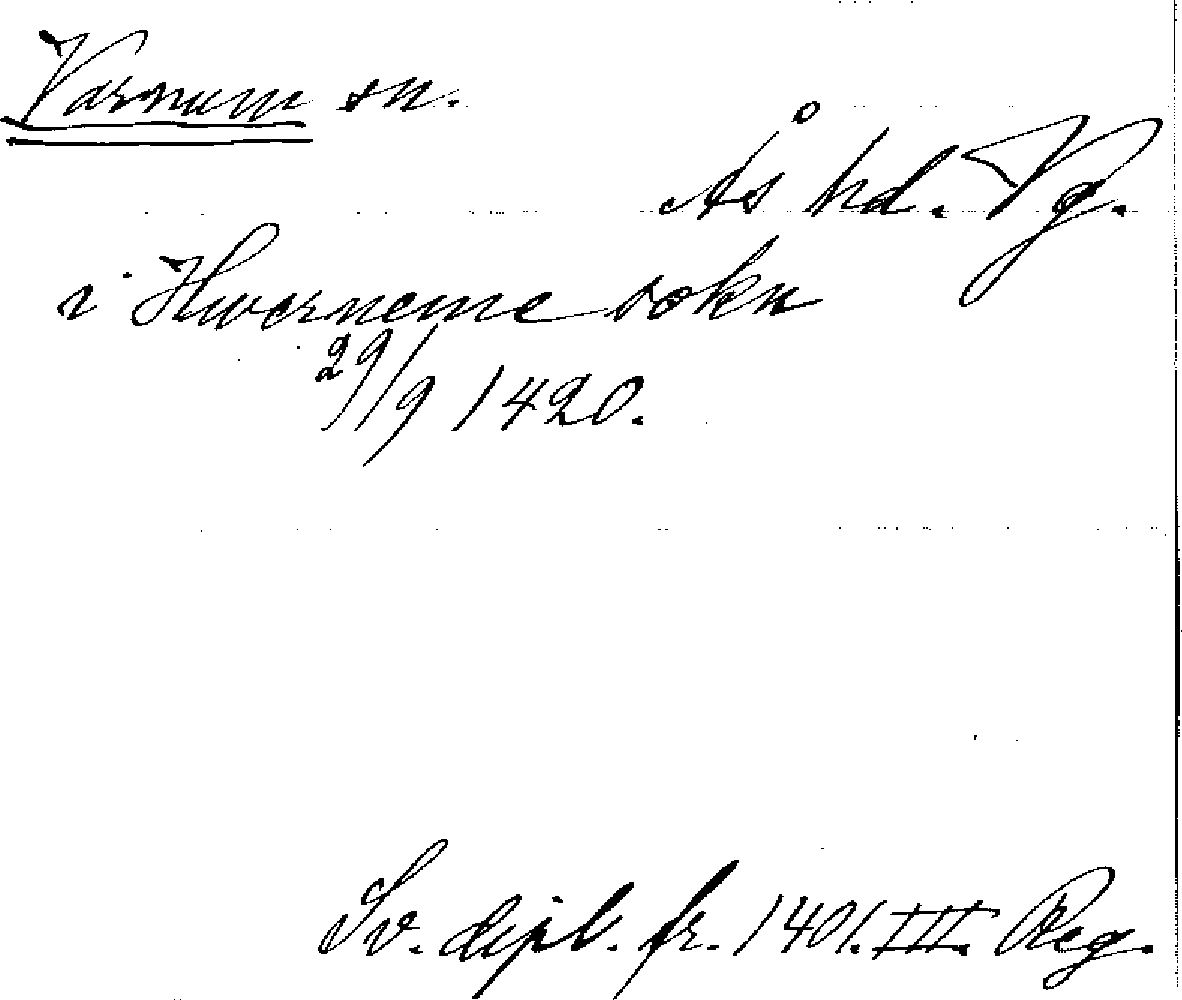 Varnum sn.
Ås hd. Vg.
i Hwerneme sokn
29/9 1420.
Sv. dipl. fr. 1401. III. Reg.